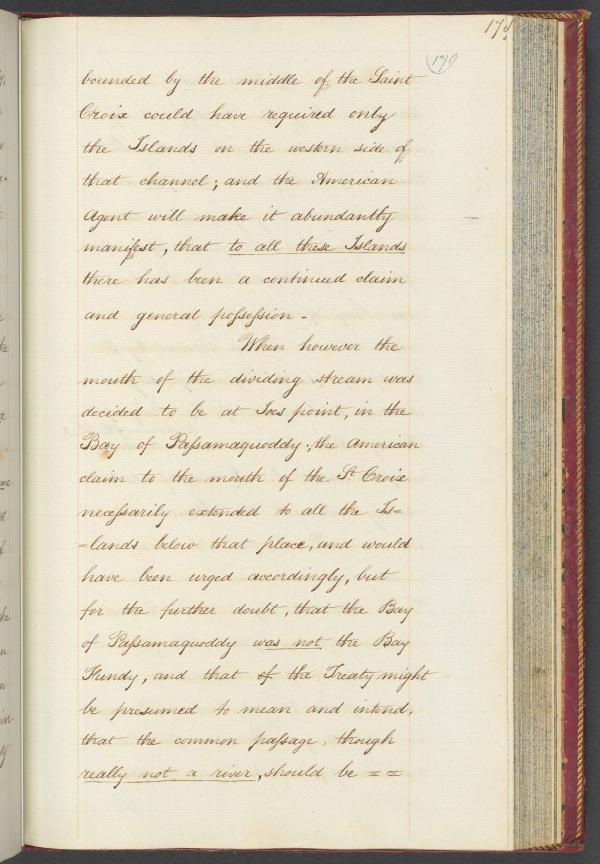 179
179
bounded by the middle of the Saint
Croix could have required only
the Islands on the western side of
that channel; and the American
Agent will make it abundantly
manifest, that to all these Islands
there has been a continued claim
and general poſseſsion -
When however the
mouth of the dividing stream was
decided to be at Joes point, in the
Bay of Paſsamaquoddy, the American
claim to the mouth of the St Croix
neceſsarily extended to all the Is=
=lands below that place, and would
have been urged accordingly, but
for the further doubt, that the Bay
of Paſsamaquoddy was not the Bay
Fundy, and that of the Treaty might
be presumed to mean and intend,
that the common paſsage, though
really not a river, should be = =